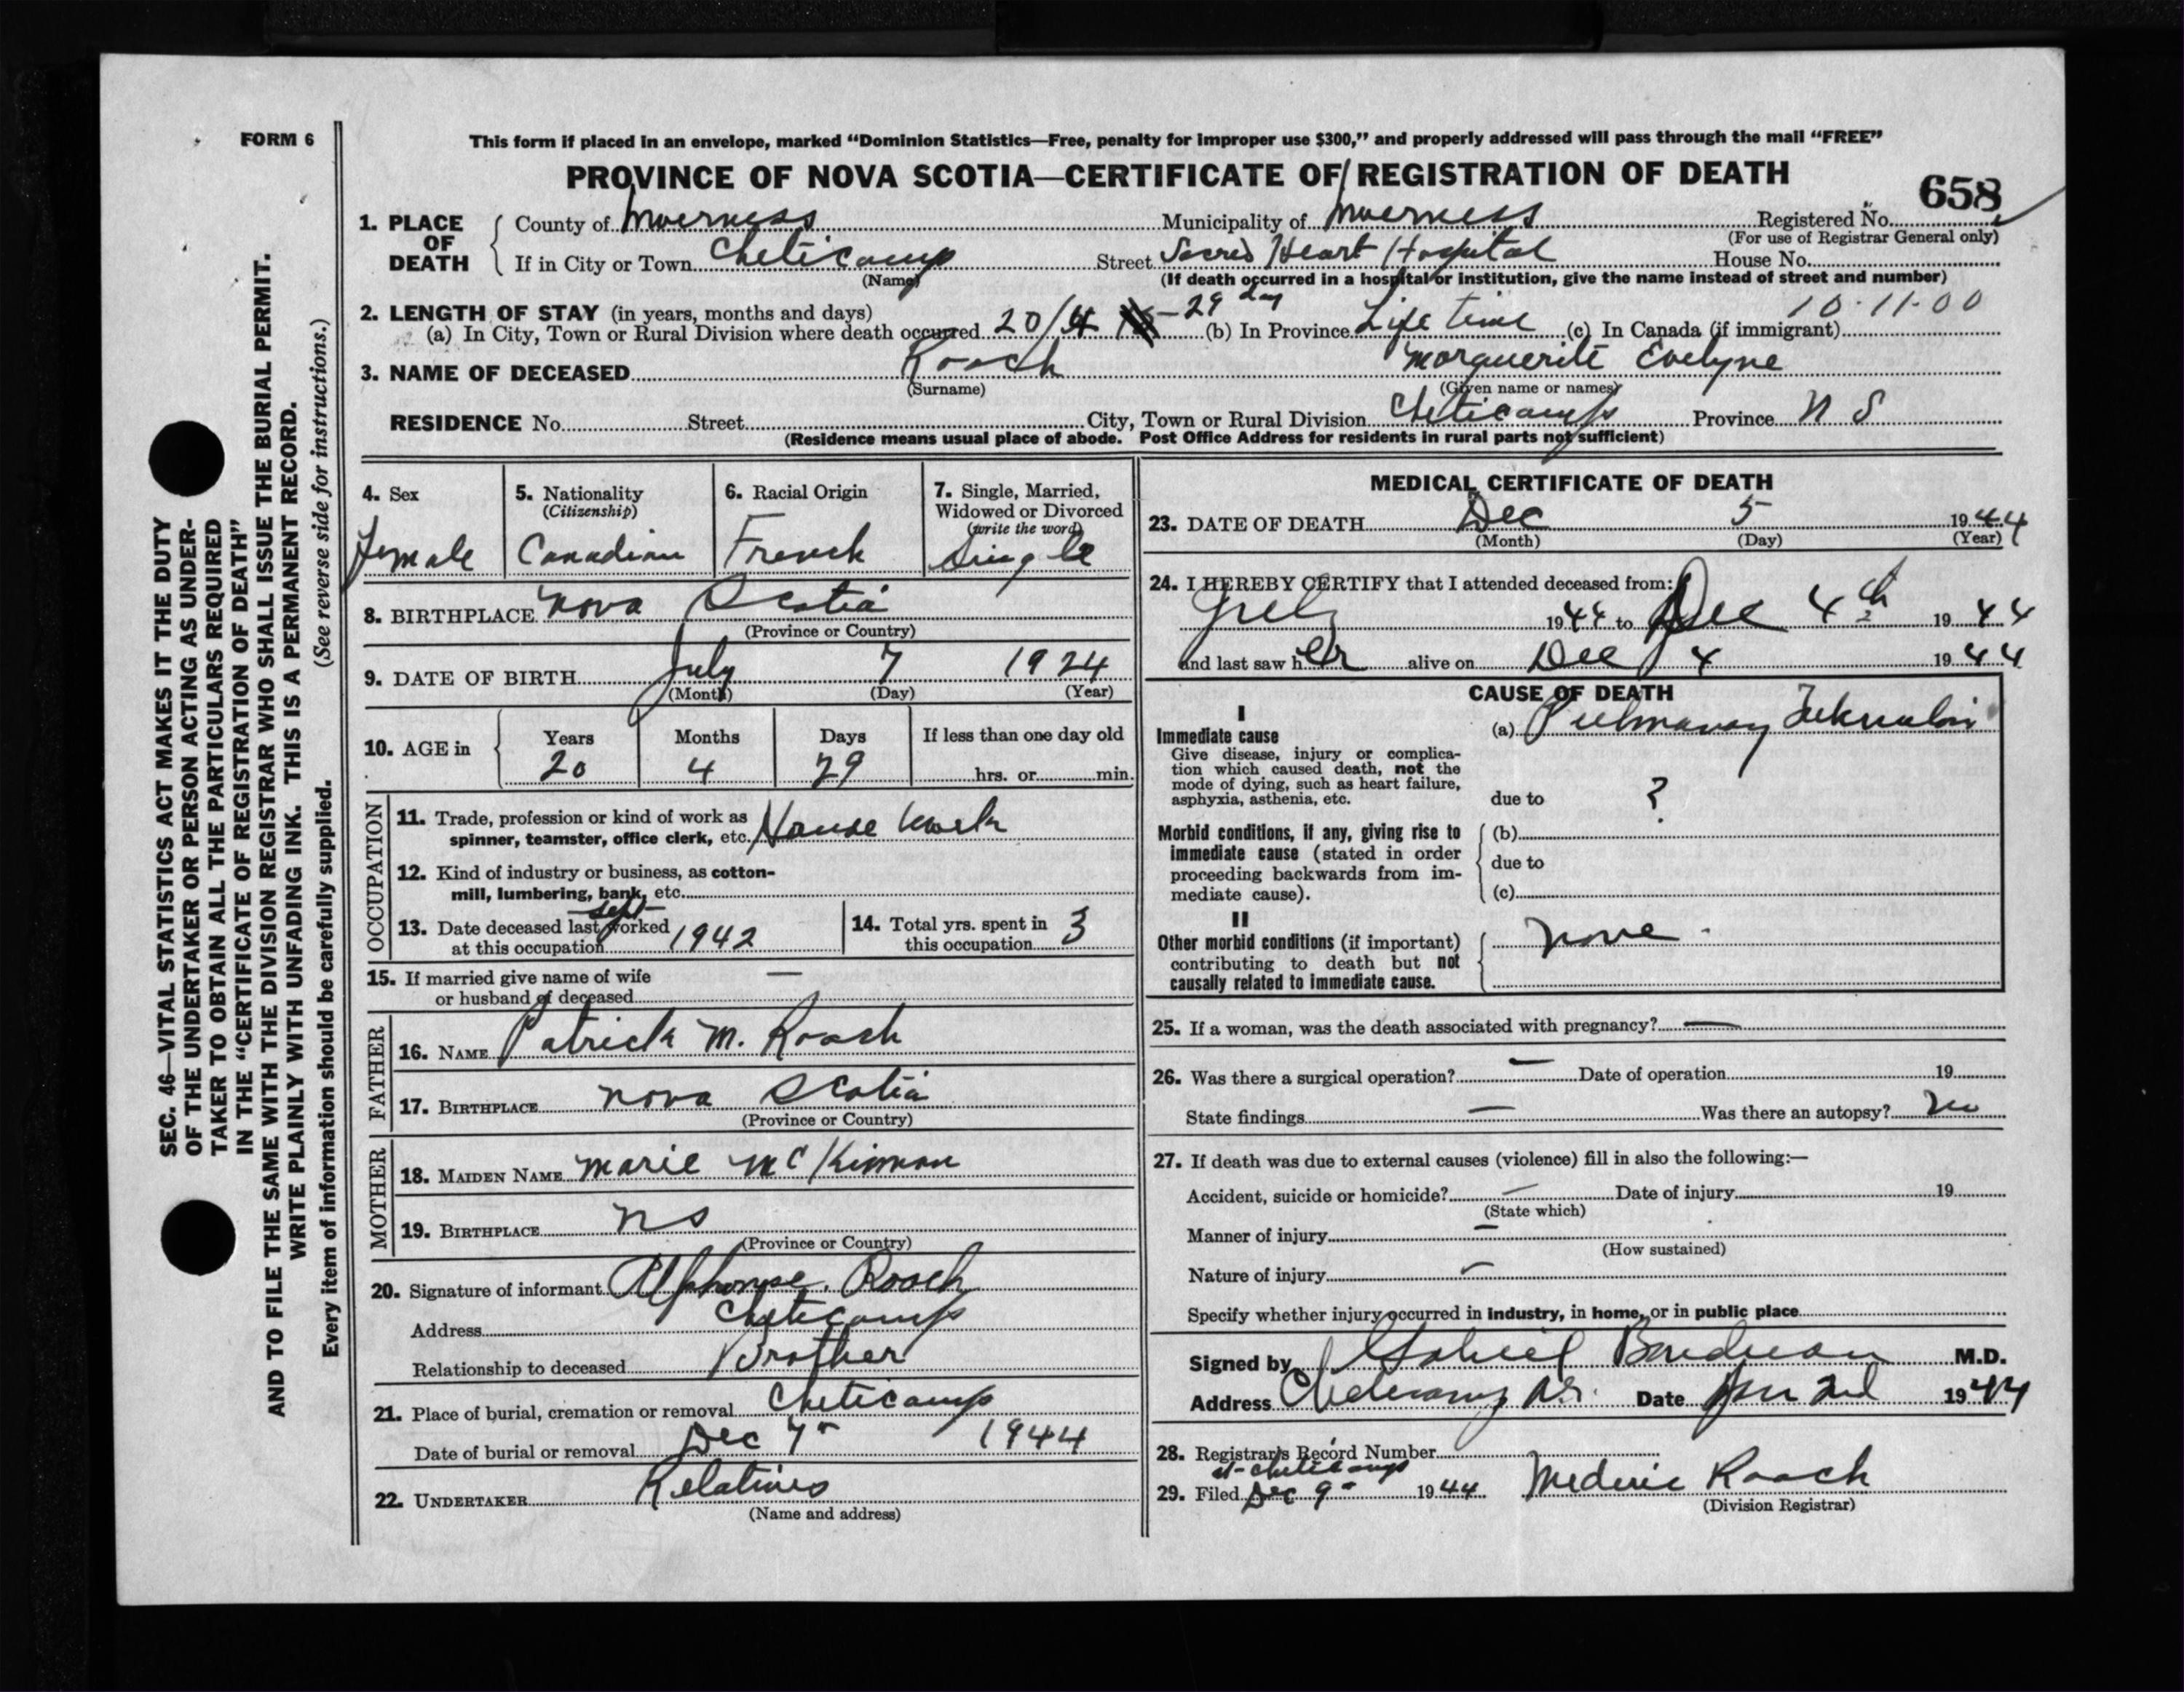 FORM 6
This form if placed in an envelope, marked “Dominion Statistics—Free, penalty for improper use $300,” and properly addressed will pass through the mail “FREE”
PROVINCE OF NOVA SCOTIA—CERTIFICATE OF REGISTRATION OF DEATH
658
1. PLACE OF DEATH
County of Inverness Municipality of Inverness Registered No.
(For use of Registrar General only)
If in City or Town Cheticamp Street Sacred Heart Hospital House No.
(Name) (If death occurred in a hospital or institution, give the name instead of street and number)
2. LENGTH OF STAY (in years, months and days) 10-11-00
(a) In City, Town or Rural Division where death occurred 20/4 - 29 day (b) In Province Life time (c) In Canada (if immigrant)
3. NAME OF DECEASED Roach Marguerite Evelyne
(Surname) (Given name or names)
RESIDENCE No. Street City, Town or Rural Division Cheticamp Province N S
(Residence means usual place of abode. Post Office Address for residents in rural parts not sufficient)
4. Sex 5. Nationality (Citizenship) 6. Racial Origin 7. Single, Married, Widowed or Divorced (write the word)
Female Canadian French Single
8. BIRTHPLACE Nova Scotia
(Province or Country)
9. DATE OF BIRTH July 7 1924
(Month) (Day) (Year)
10. AGE in Years Months Days If less than one day old
20 4 29 hrs. or min.
OCCUPATION
11. Trade, profession or kind of work as
spinner, teamster, office clerk, etc. House Work
12. Kind of industry or business, as cotton-
mill, lumbering, bank, etc.
13. Date deceased last worked
at this occupation Sept 1942
14. Total yrs. spent in
this occupation 3
15. If married give name of wife
or husband of deceased —
FATHER
16. NAME Patrick M. Roach
17. BIRTHPLACE Nova Scotia
(Province or Country)
MOTHER
18. MAIDEN NAME Marie McKinnon
19. BIRTHPLACE NS
(Province or Country)
20. Signature of informant Alphonse Roach
Address Cheticamp
Relationship to deceased Brother
21. Place of burial, cremation or removal Cheticamp
Date of burial or removal Dec 7 1944
22. UNDERTAKER Relatives
(Name and address)
MEDICAL CERTIFICATE OF DEATH
23. DATE OF DEATH Dec 5 1944
(Month) (Day) (Year)
24. I HEREBY CERTIFY that I attended deceased from:
1944 to Dec 4th 1944
and last saw her alive on Dec 4 1944
CAUSE OF DEATH
I
Immediate cause
Give disease, injury or complica-
tion which caused death, not the
mode of dying, such as heart failure,
asphyxia, asthenia, etc.
(a) Pulmonary
due to ?
Morbid conditions, if any, giving rise to
immediate cause (stated in order
proceeding backwards from im-
mediate cause).
(b)
due to
(c)
II
Other morbid conditions (if important)
contributing to death but not
causally related to immediate cause.
None
25. If a woman, was the death associated with pregnancy? —
26. Was there a surgical operation? — Date of operation 19
State findings — Was there an autopsy? No
27. If death was due to external causes (violence) fill in also the following:—
Accident, suicide or homicide? — Date of injury 19
(State which)
Manner of injury —
(How sustained)
Nature of injury —
Specify whether injury occurred in industry, in home, or in public place
Signed by Gabriel Boudreau M.D.
Address N.S. Date 1944
28. Registrar's Record Number
at Cheticamp
29. Filed Dec 9 1944 Mederic Roach
(Division Registrar)
SEC. 46—VITAL STATISTICS ACT MAKES IT THE DUTY
OF THE UNDERTAKER OR PERSON ACTING AS UNDER-
TAKER TO OBTAIN ALL THE PARTICULARS REQUIRED
IN THE “CERTIFICATE OF REGISTRATION OF DEATH”
AND TO FILE THE SAME WITH THE DIVISION REGISTRAR WHO SHALL ISSUE THE BURIAL PERMIT.
WRITE PLAINLY WITH UNFADING INK. THIS IS A PERMANENT RECORD.
Every item of information should be carefully supplied. (See reverse side for instructions.)